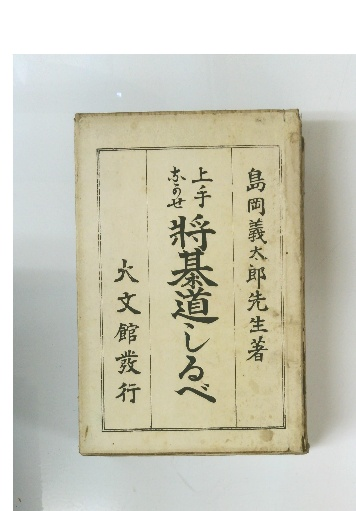 島岡義太郎先生著
上手
なかせ
将碁道しるべ
大文館發行